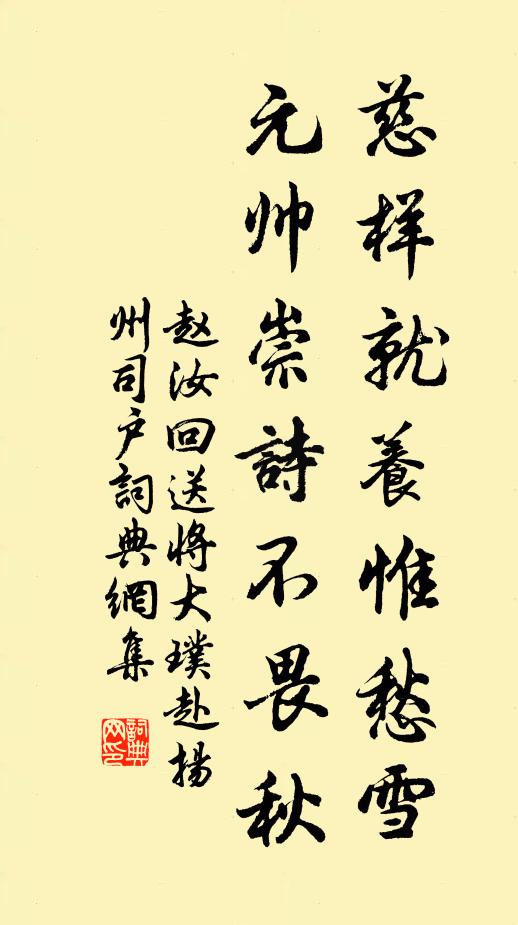 慈样就養惟愁雪
元帅崇詩不畏秋
赵汝回送将大璞赴揚
州司户詞典網集
詞典網印